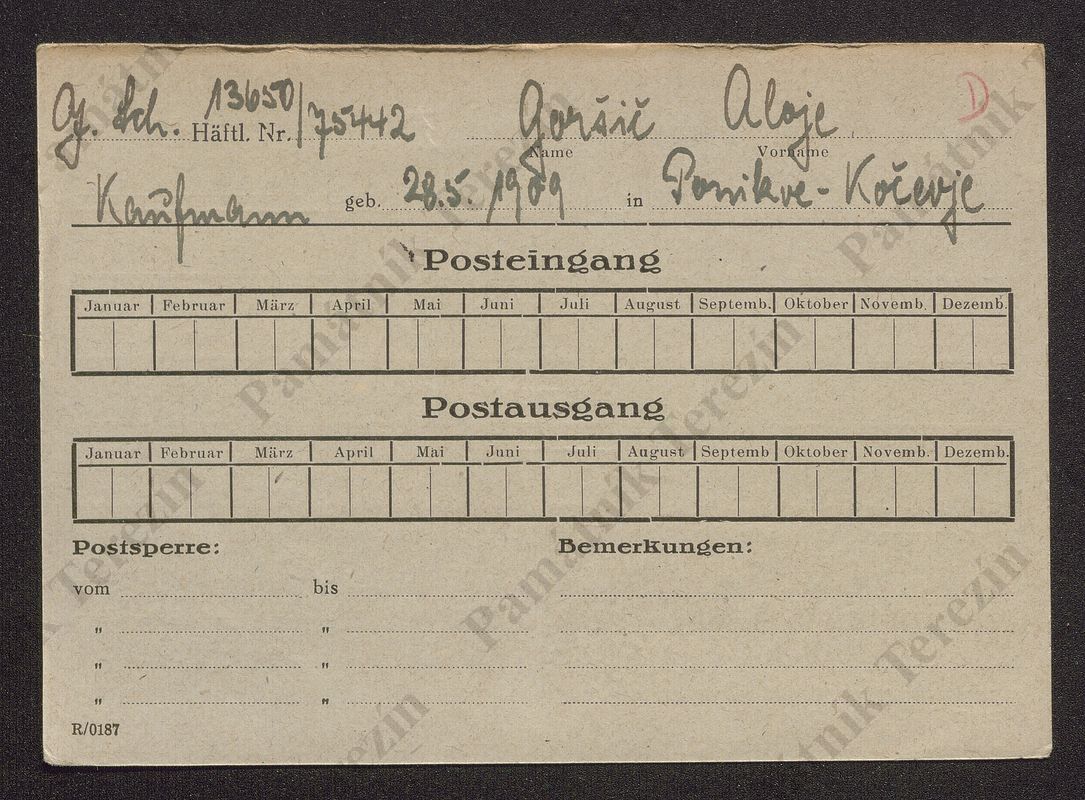 13650
Sch. Häftl. Nr. /75442 Goršič Alojz D
Name Vorname
Kaufmann geb. 28.5. 1909 in Ponikve - Kočevje
Posteingang
Januar Februar März April Mai Juni Juli August Septemb. Oktober Novemb. Dezemb.
Postausgang
Januar Februar März April Mai Juni Juli August Septemb Oktober Novemb. Dezemb.
Postsperre: Bemerkungen:
vom bis
" "
" "
" "
R/0187
Památník Terezín